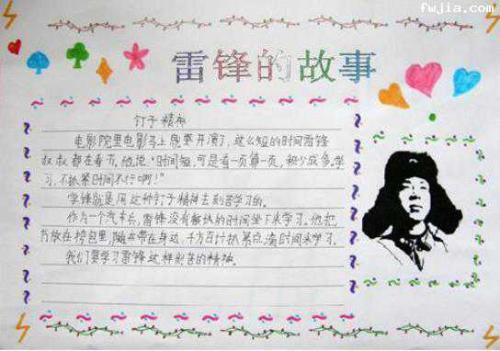 fwjia.com
雷锋的故事
钉子精神
电影院里电影马上就要开演了，这么短的时间雷锋
叔叔都在看书。他说："时间短，可是看一页算一页，积少成多。学
习，不抓紧时间不行啊！"
雷锋就是用这种钉子精神去刻苦学习的。
作为一个汽车兵，雷锋没有整块的时间坐下来学习。他把
书放在挎包里，随身带在身边，千方百计抓紧点滴时间来学习。
我们要学习雷锋这样刻苦的精神。